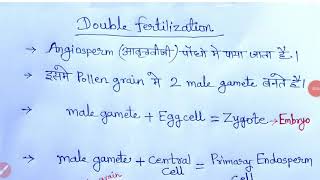 Double fertilization
→ Angiosperm (आवृतबीजी) पौधों में पाया जाता है.।
→ इसमें Pollen grain में 2 male gamete बनते हैं।
male gamete + Egg cell = Zygote → Embryo
→ male gamete + Central cell = Primary Endosperm
grain